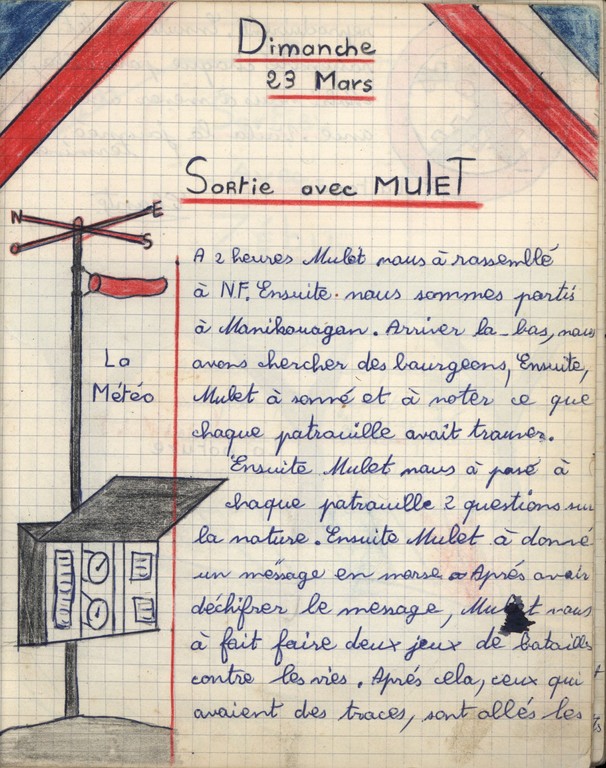 Dimanche
23 Mars
Sortie avec MULET
N
E
S
La
Météo
A 2 heures Mulet nous à rassemblé
à N.F. Ensuite nous sommes partis
à Manikouagan. Arriver la-bas, nous
avons chercher des bourgeons, Ensuite,
Mulet à sonné et à noter ce que
chaque patrouille avait trouver.
Ensuite Mulet nous à posé à
chaque patrouille 2 questions sur
la nature. Ensuite Mulet à donné
un message en morse. Aprés avoir
déchifrer le message, Mulet nous
à fait faire deux jeux de batailles
contre les vies. Aprés cela, ceux qui
avaient des traces, sont allés les